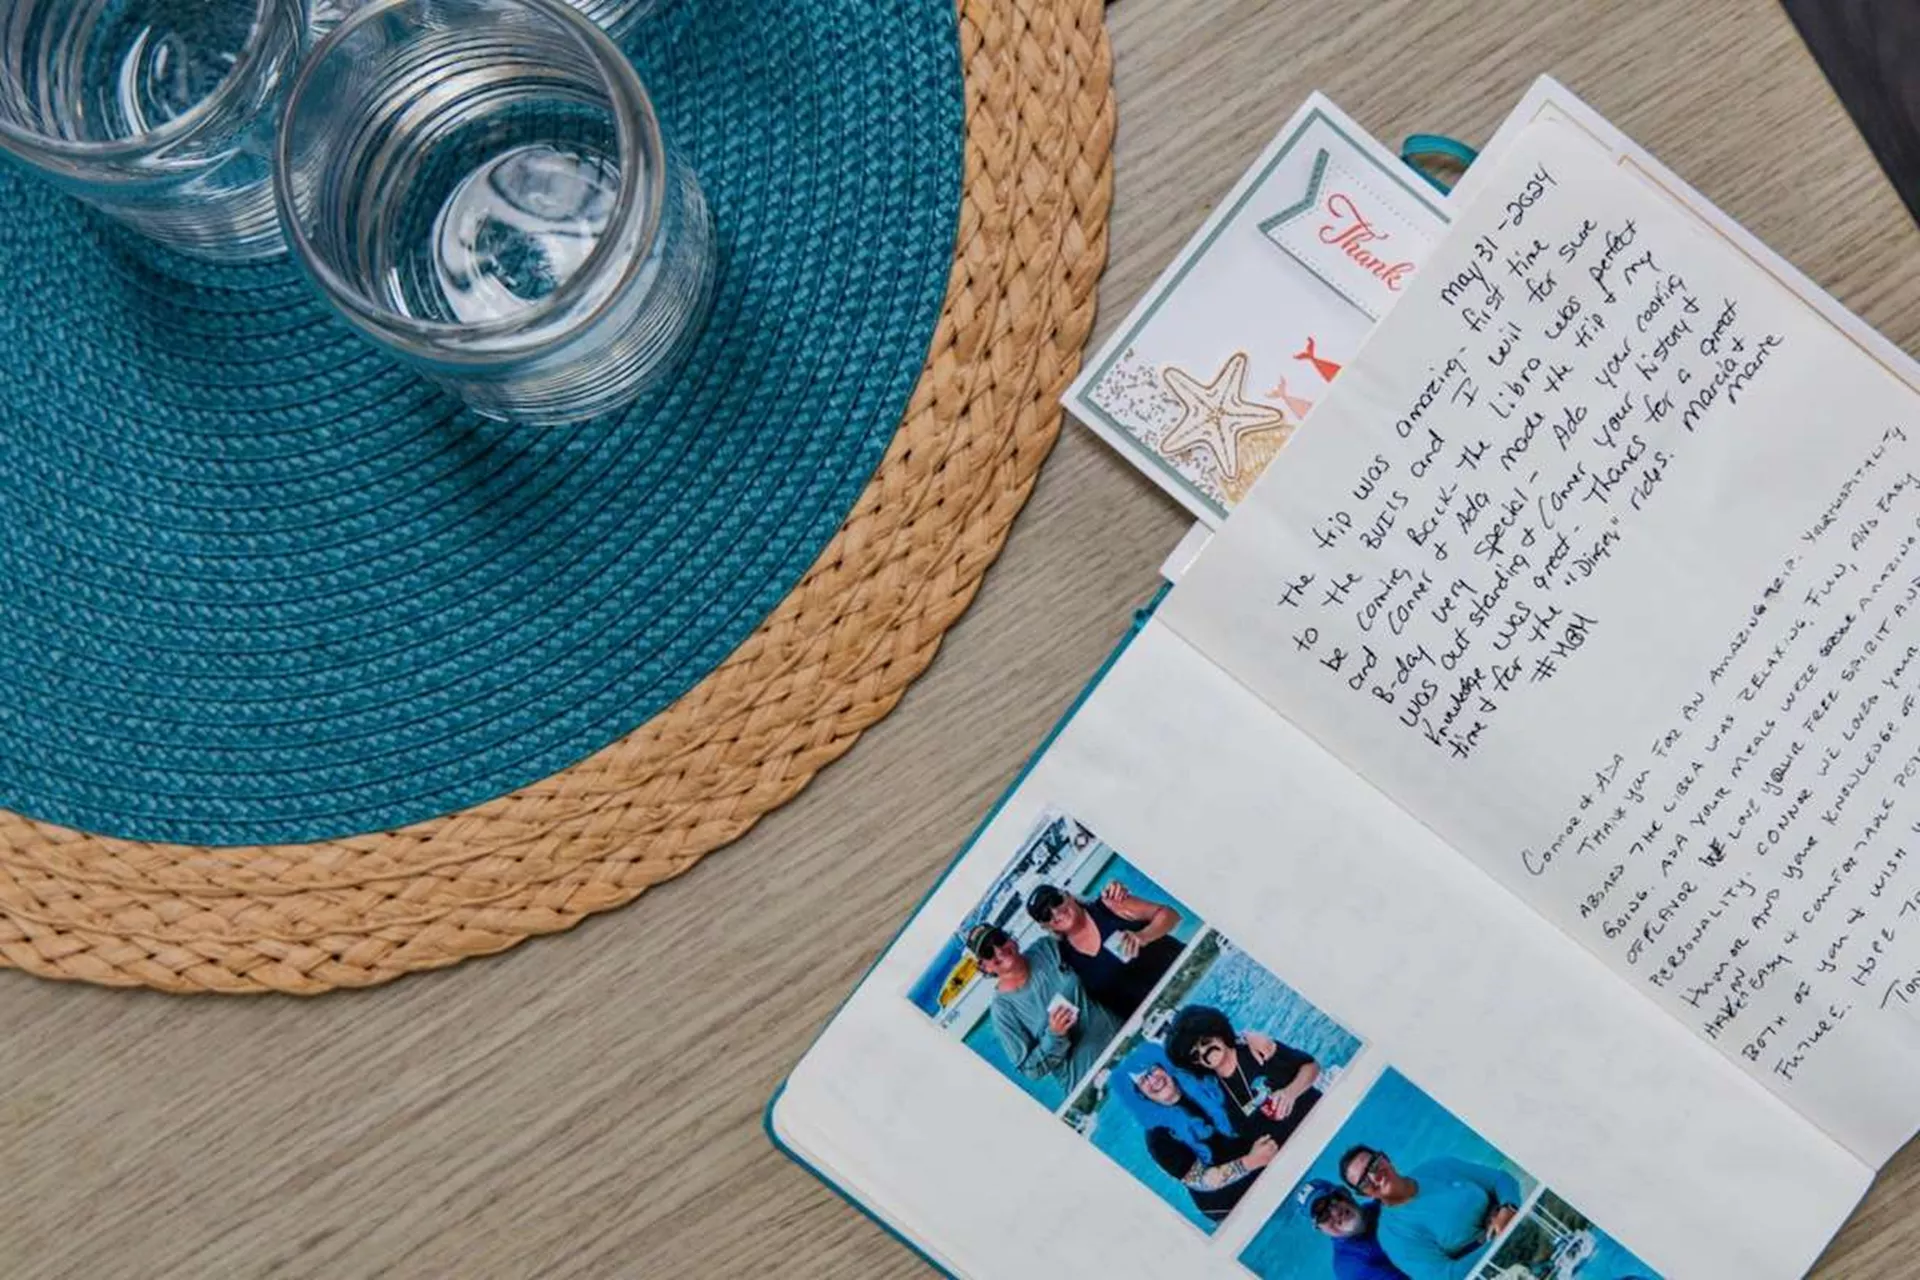 Thank
May 31-2024
The trip was amazing - first time
to the BVI's and I will for sure
be coming Back - the Libra was perfect
and Conner & Ada made the trip & my
B-day very special - Ada your cooking
was outstanding & Conner your history &
knowledge was great - Thanks for a great
time & for the "Dingy" rides. Marcia &
#HBH Marie
Connor & ADA
THANK YOU FOR AN AMAZING TRIP. YOUR HOSPITALITY
ABOARD THE LIBRA WAS RELAXING, FUN, AND EASY
GOING. ADA YOUR MEALS WERE AMAZING
OF FLAVOR WE LOVE YOUR FREE SPIRIT AND
PERSONALITY. CONNOR WE LOVED YOUR
HUMOR AND YOUR KNOWLEDGE OF
EASY & COMFORTABLE
BOTH OF YOU & WISH
FUTURE. HOPE TO